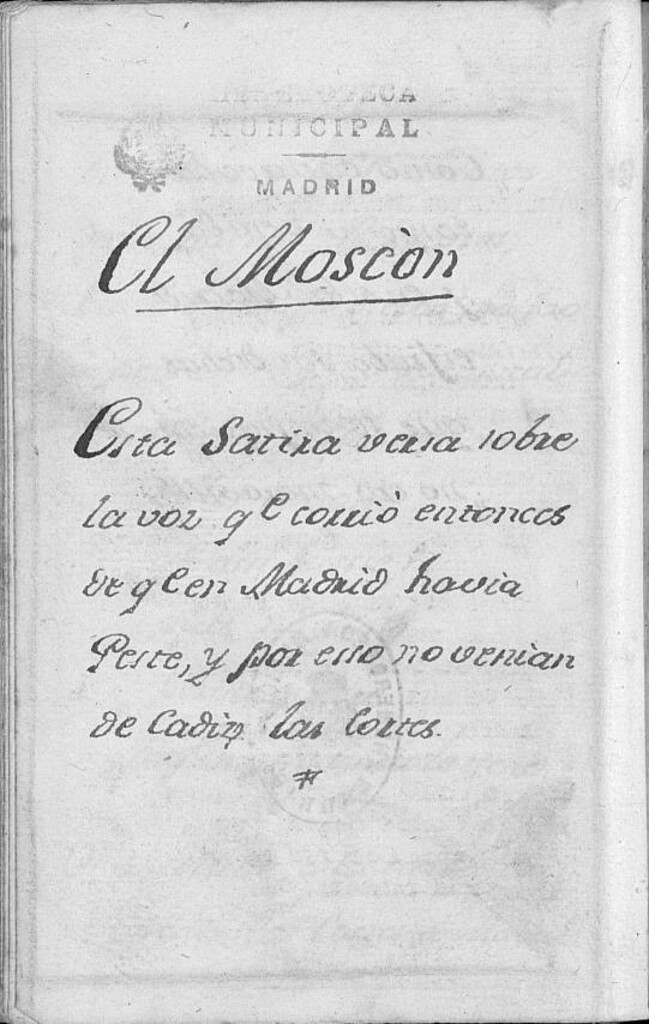 HEMEROTECA
MUNICIPAL
MADRID
El Moscòn
Esta Satira versa sobre
la voz q.e corriò entonces
de q.e en Madrid havia
Peste, y por esso no venian
de Cadiz las Cortes.
#